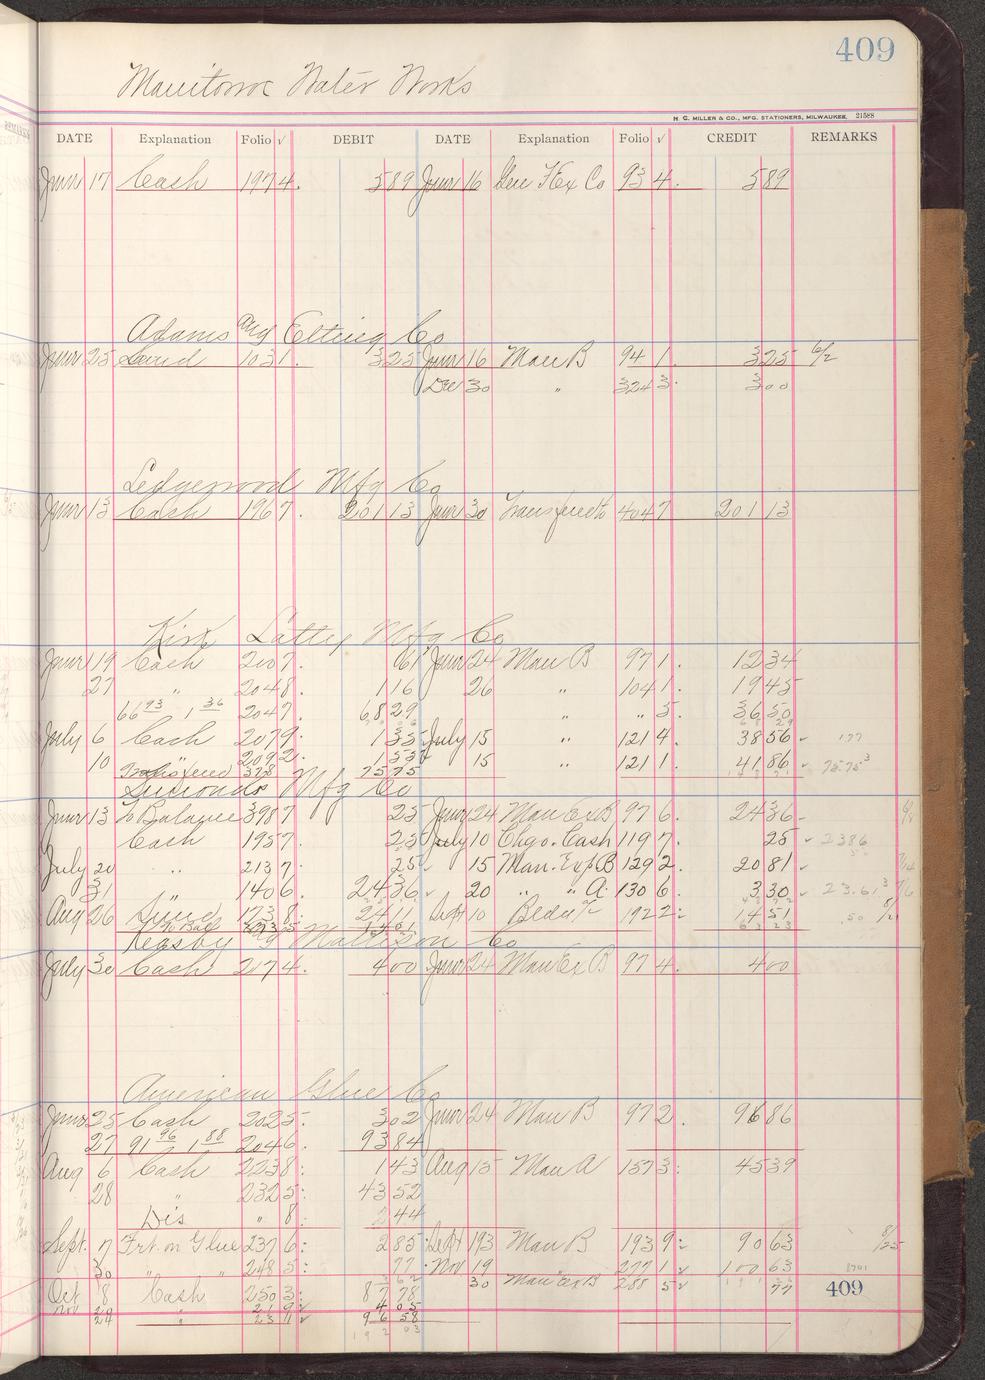 409
Manitowoc Water Works
H. C. MILLER & CO., MFG. STATIONERS, MILWAUKEE. 21588
DATE Explanation Folio √ DEBIT DATE Explanation Folio √ CREDIT REMARKS
June 17 Cash 1974. 589 June 16 Gen & Ex Co 934. 589
Adams and Elting Co
June 25 Sound 1031. 325 June 16 Man B 941. 325 6/2
Dec 30 " 3243. 300
Ledgerwood Mfg Co
June 13 Cash 1967. 20113 June 30 4047 20113
Kirk Latty Mfg Co
June 19 Cash 2007. 61 June 24 Man B 971. 1234
27 " 2048. 116 26 " 1041. 1945
66 93 1 36 2047. 6829 " " 5. 3650
July 6 Cash 2079. 135 July 15 " 1214. 3856 √ 177
10 " 2092. 155 15 " 1211. 4186 √ 7575
Transferred 328 7575
Simonds Mfg Co
June 13 To Balance 3987 25 June 24 Man Ex B 976. 2436
Cash 1957. 25 July 10 Chgo. Cash 1197. 25 √ 2386
July 20 " 2137. 25 15 Man. Exp B 1292. 2081 √
31 " 1406. 2436 √ 20 " " A. 1306. 330 √ 23.61
Aug 26 1738. 2411 Sept 10 1922. 451 .50
To Bal
Keasby and Mattison Co
July 30 Cash 2174. 400 June 24 Man Ex B 974. 400
American Glue Co
June 25 Cash 2025. 302 June 24 Man B 972. 9686
27 91 96 1 88 2046. 9384
Aug 6 Cash 2238: 143 Aug 15 Man A 1573: 4539
28 " 2325: 4352
Dis " 8: 44
Sept. 7 Frt. on Glue 2376: 285 Sept 193 Man B 1939: 9063 8/25
30 " " 2485: 77 Nov 19 2771 √ 10063
Oct 8 Cash 2503: 8778 30 Man Ex B 288 5 √ 77 409
Nov 219 √ 405
24 " 2311 √ 9658
19203